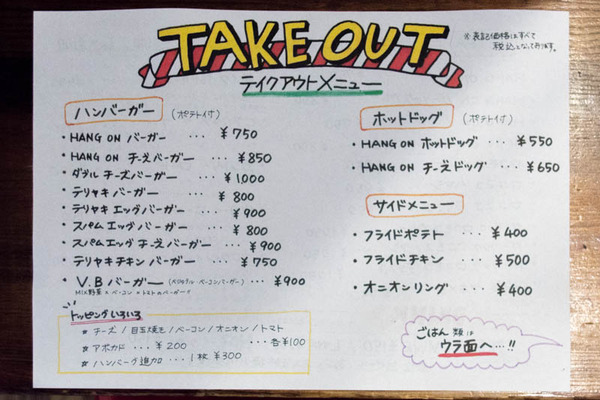 TAKE OUT
※ 表記価格はすべて
税込となっております。
テイクアウトメニュー
ハンバーガー (ポテト付)
・HANG ON バーガー ... ¥750
・HANG ON チーズバーガー ... ¥850
・ダブル チーズバーガー ... ¥1,000
・テリヤキ バーガー ... ¥800
・テリヤキ エッグ バーガー ... ¥900
・スパム エッグ バーガー ... ¥800
・スパム エッグ チーズ バーガー ... ¥900
・テリヤキ チキン バーガー ... ¥750
・V.B バーガー (ベジタブル・ベーコンバーガー) ... ¥900
MIX野菜 × ベーコン × トマトのバーガー
トッピングいろいろ
☆ チーズ / 目玉焼き / ベーコン / オニオン / トマト
... 各¥100
☆ アボカド ... ¥200
☆ ハンバーグ追加 ... 1枚 ¥300
ホットドッグ (ポテト付)
・HANG ON ホットドッグ ... ¥550
・HANG ON チーズドッグ ... ¥650
サイドメニュー
・フライドポテト ... ¥400
・フライドチキン ... ¥500
・オニオンリング ... ¥400
ごはん 類は
ウラ面へ...!!